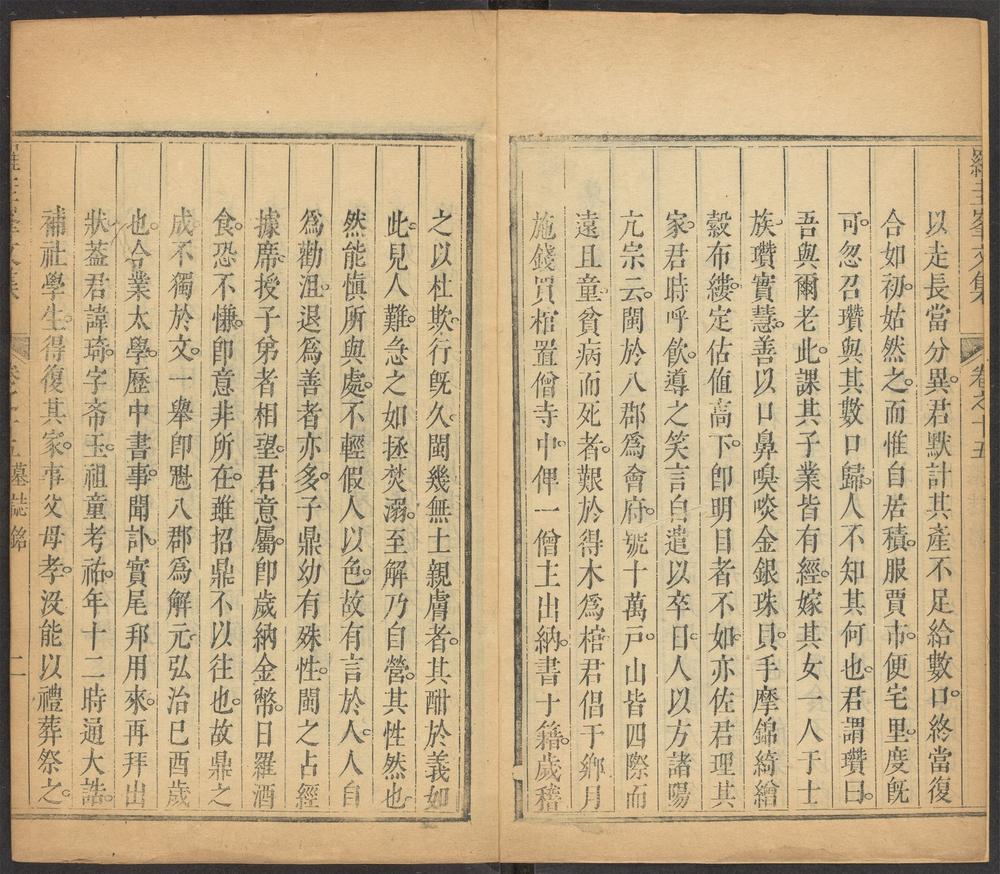 羅圭峯文集
卷之十五
以走長當分異。君默計其產不足給數口。終當復
合如初。姑然之。而惟自居積。服賈市。便宅里。度旣
可。忽召瓚與其數口歸。人不知其何也。君謂瓚曰。
吾與爾老此。課其子業皆有經。嫁其女一人于士
族。瓚實慧。善以口鼻嗅啖金銀珠貝。手摩錦綺繒
縠布縷。定估値高下。卽明目者不如。亦佐君理其
家。君時呼飮。導之笑言自遣以卒。曰。人以方諸陽
亢宗云。閩於八郡爲會府。號十萬戸。山皆四際而
遠且童。貧病而死者。艱於得木爲棺。君倡于鄕。月
施錢買棺置僧寺中。俾一僧主出納。書于籍。歲稽
之以杜欺。行旣久。閩幾無土親膚者。其酣於義如
此。見人難急之如拯焚溺。至解乃自營。其性然也
然能愼所與處。不輕假人以色。故有言於人。人自
爲勸沮。退爲善者亦多。子鼎幼有殊性。閩之占經
據席。授子弟者相望。君意屬。卽歲納金幣。日羅酒
食。恐不慊。卽意非所在。雖招鼎不以往也。故鼎之
成不獨於文。一舉卽魁八郡爲解元。弘治已酉歲
也。今業太學。歷中書事。聞訃。實尾邦用來。再拜出
狀。蓋君諱琦。字斋玉。祖童考祐。年十二時通大誥。
補社學生。得復其家。事父母孝。没能以禮葬祭之。
墓誌銘
二